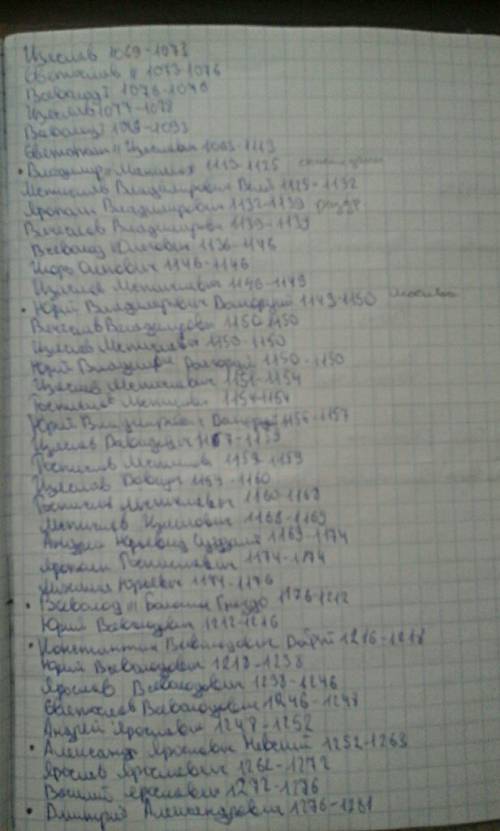 Изеслав 1069-1073
Святослав II 1073-1076
Всеволод I 1076-1078
Изеслав 1077-1078
Всеволод 1078-1093
Святополк II Изеславич 1093-1113
• Владимир Мономах 1113-1125
Мстислав Владимирович Вели 1125-1132
Ярополк Владимирович 1132-1139 раздр
Вячеслав Владимирович 1139-1139
Всеволод Ольгович 1136-1146
Игорь Олегович 1146-1146
Изеслав Мстиславич 1146-1149
• Юрий Владимирович Долгорукий 1149-1150 Москва
Вячеслав Владимирови 1150-1150
Изеслав Мстиславич 1150-1150
Юрий Владимирович Долгорукий 1150-1150
Изеслав Мстиславич 1151-1154
Ростислав Мстислав 1154-1154
Юрий Владимирович Долгорукий 1155-1157
Изеслав Давидович 1157-1159
Ростислав Мстислав 1159-1159
Изеслав Давид 1159-1160
Ростислав Мстиславич 1160-1168
Мстислав Изеславович 1168-1169
Андрей Юрьевич 1169-1174
Ярополк Ростиславич 1174-1174
Михаил Юрьевич 1174-1176
• Всеволод III Большое Гнездо 1176-1212
Юрий Всеволодович 1212-1216
• Константин Всеволодович Добрый 1216-1218
Юрий Всеволодович 1218-1238
Ярослав Всеволодович 1238-1246
Святослав Всеволодович 1246-1248
Андрей Ярославич 1248-1252
• Александр Ярославич Невский 1252-1263
Ярослав Ярославич 1262-1272
Василий Ярославич 1272-1276
• Дмитрий Александрович 1276-1281